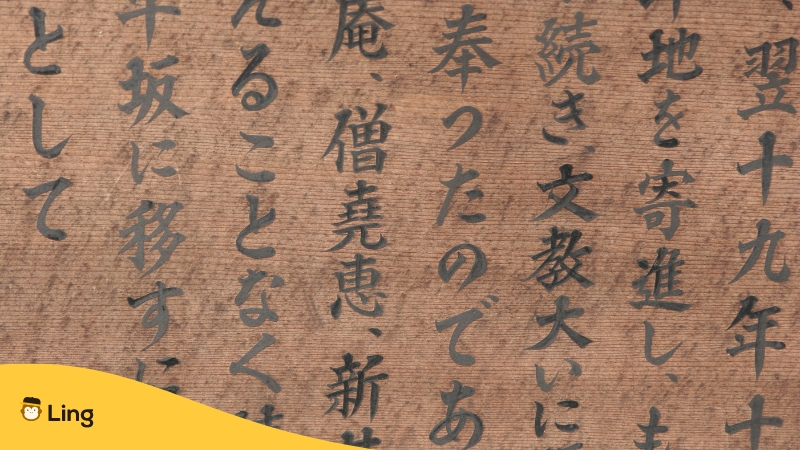 、翌十九年十
地を寄進し、
続き、文教大いに
奉つたのであ
庵、僧堯恵、新
えることなく
年坂に移すに
として
Ling